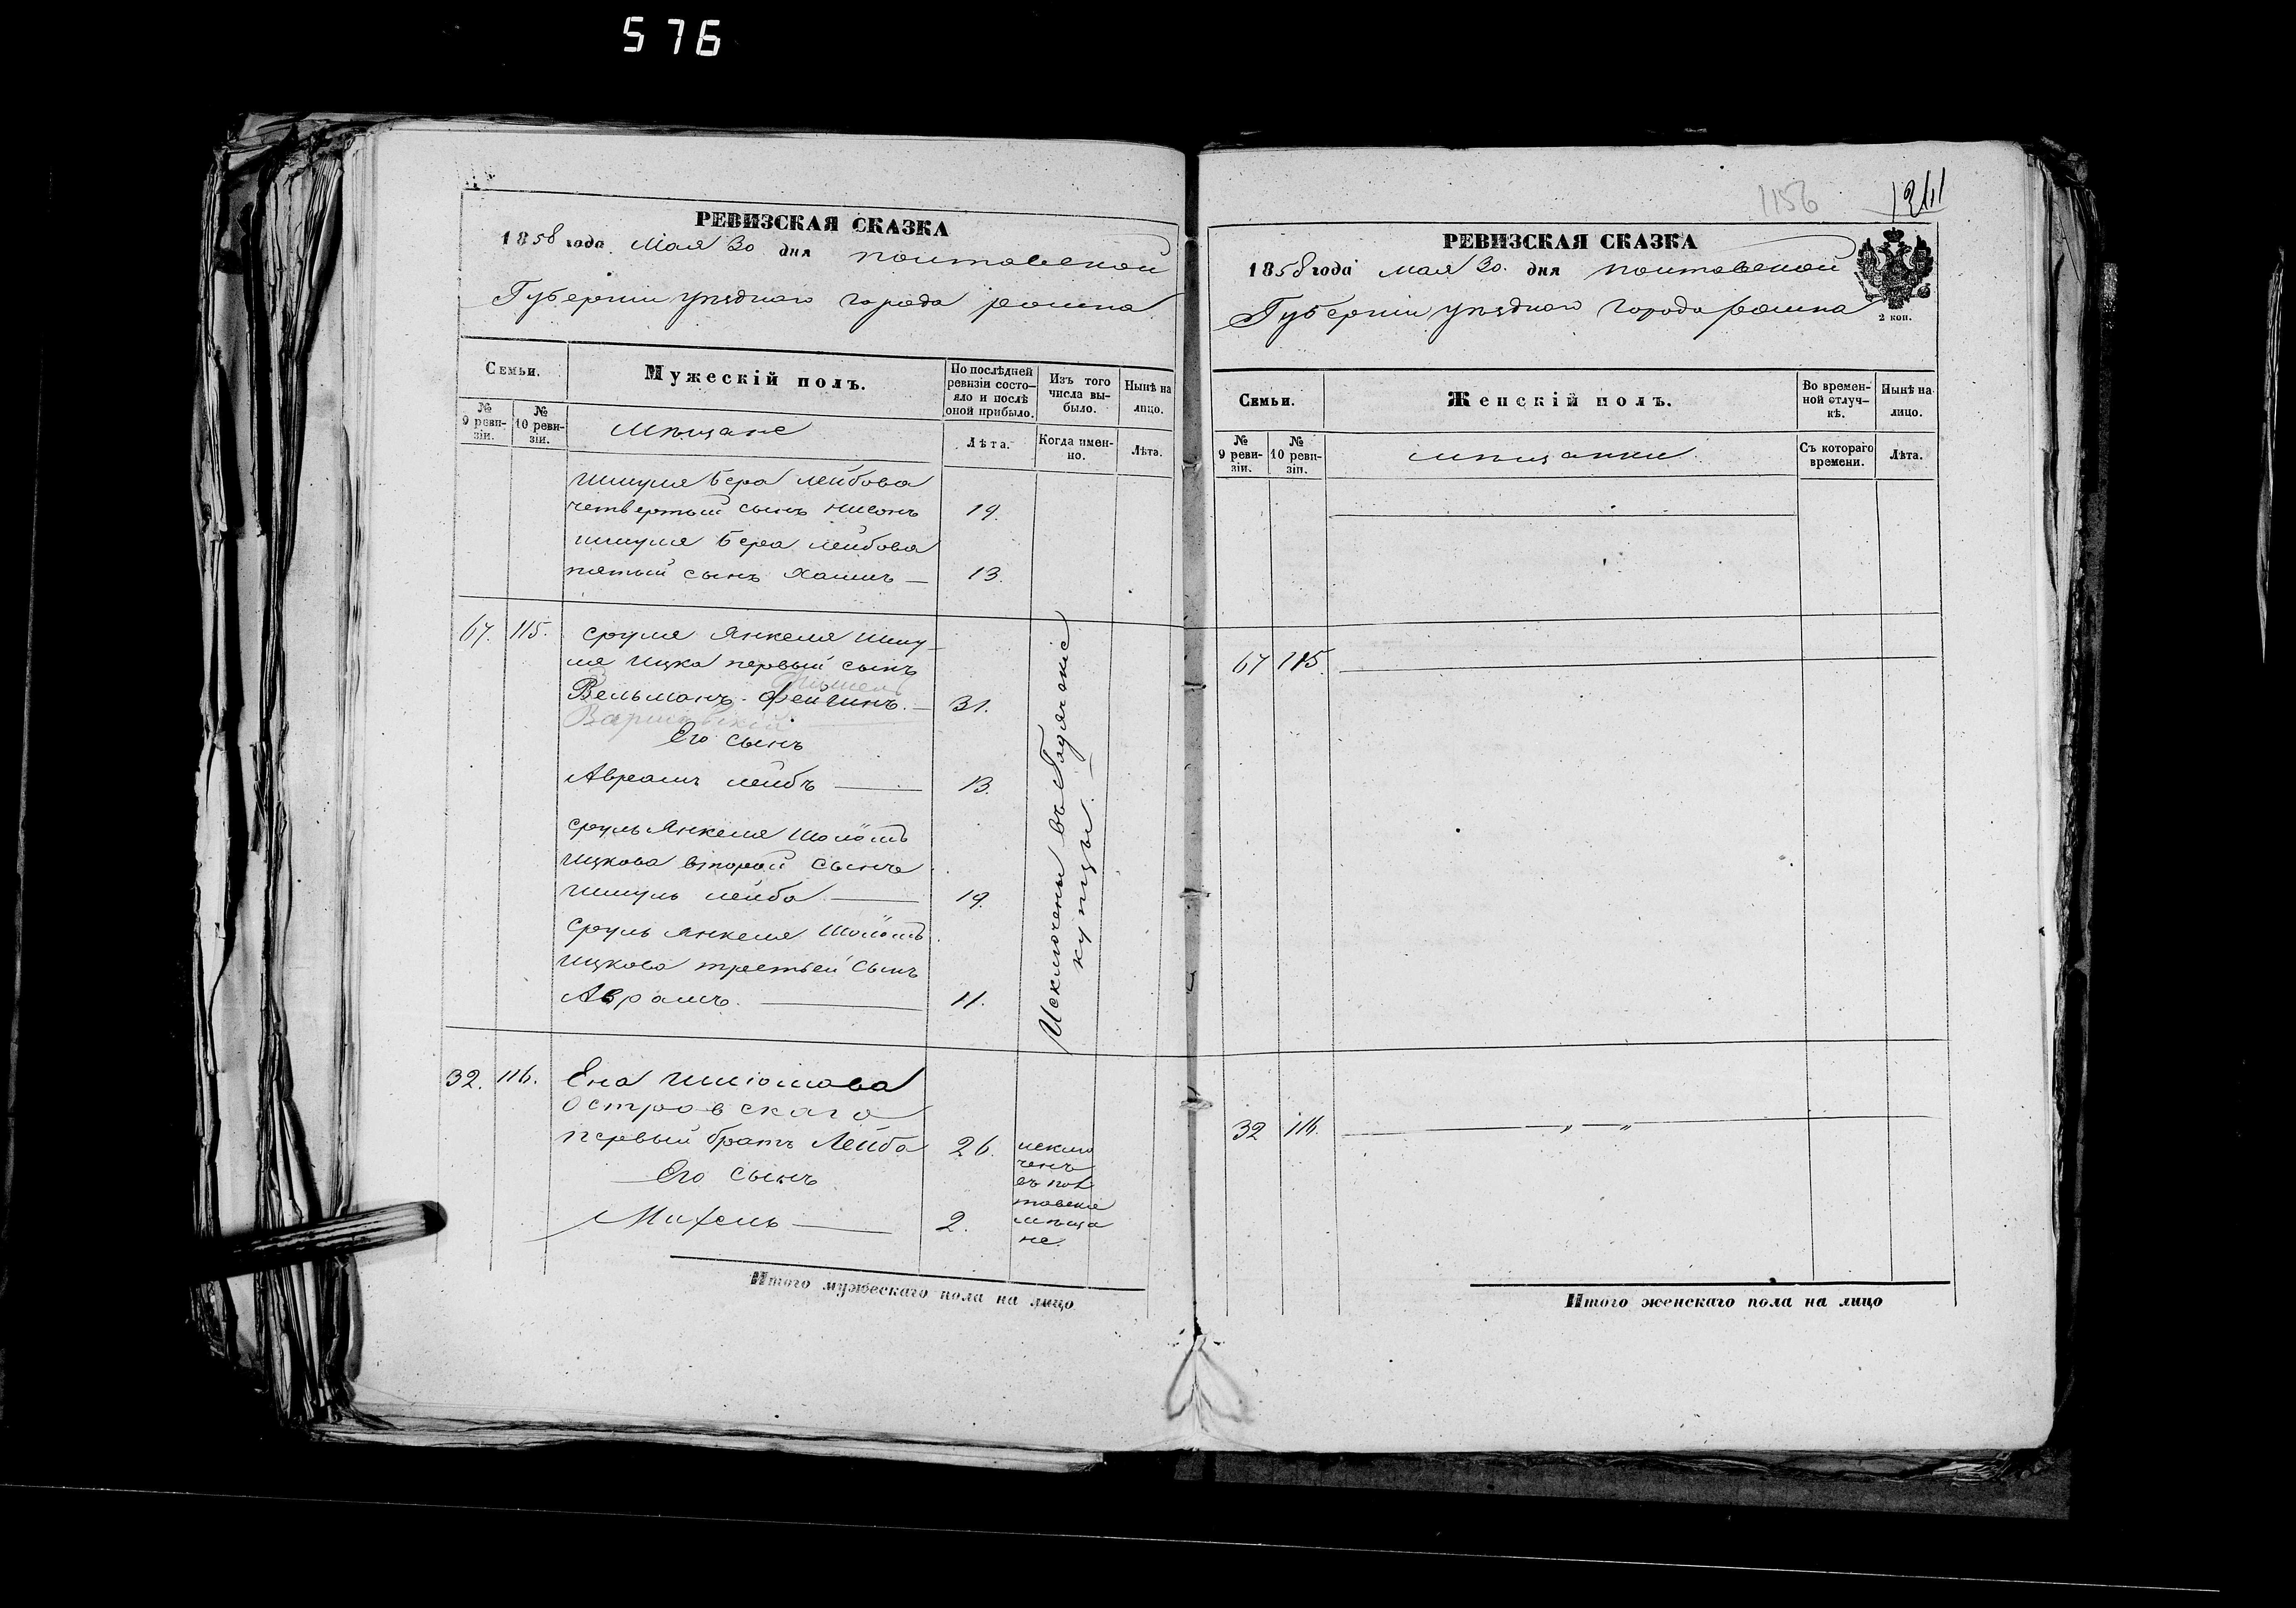 576
РЕВИЗСКАЯ СКАЗКА
1858 года Мая 30 дня Полтавской
Губернии уѣзднаго города ромна
Семьи.
Мужескій полъ.
По послѣдней ревизіи состо-
яло и послѣ
оной прибыло.
Изъ того
числа вы-
было.
Нынѣ на
лицо.
№
9 реви-
зіи.
№
10 реви-
зіи.
Мѣщане
Лѣта.
Когда имен-
но.
Лѣта.
Шмуля Бера Лейбова
четвертый сынъ Нисонъ 19.
Шмуля Бера Лейбова
пятый сынъ Хаимъ — 13.
67. 115. Сруля Янкеля Шму-
ля Ицка первый сынъ
Вельманъ Фейгинъ. — 31.
Варшавскій
Его сынъ
Авраамъ Лейбъ — 13.
Сруль Янкеля Шоломъ
Ицкова второй сынъ
Шмуль Лейба — 19.
Сруль Янкеля Шоломъ
Ицкова третьей сынъ
Аврамъ. — 11.
Исключены въ Гадячскіе
купцы. —
32. 116. Ена
Островскаго
первый братъ Лейба 26.
Его сынъ
Михель — 2.
исклю
ченъ
въ пол
тавскіе
мѣща
не.
Итого мужескаго пола на лицо
1156
1241
РЕВИЗСКАЯ СКАЗКА
1858 года мая 30. дня полтавской
Губернии уѣзднаго города ромна
2 коп.
Семьи.
Женскій полъ.
Во времен-
ной отлуч-
кѣ.
Нынѣ на
лицо.
№
9 реви-
зіи.
№
10 реви-
зіи.
мѣщанки
Съ котораго
времени.
Лѣта.
67 115
32 116.
Итого женскаго пола на лицо